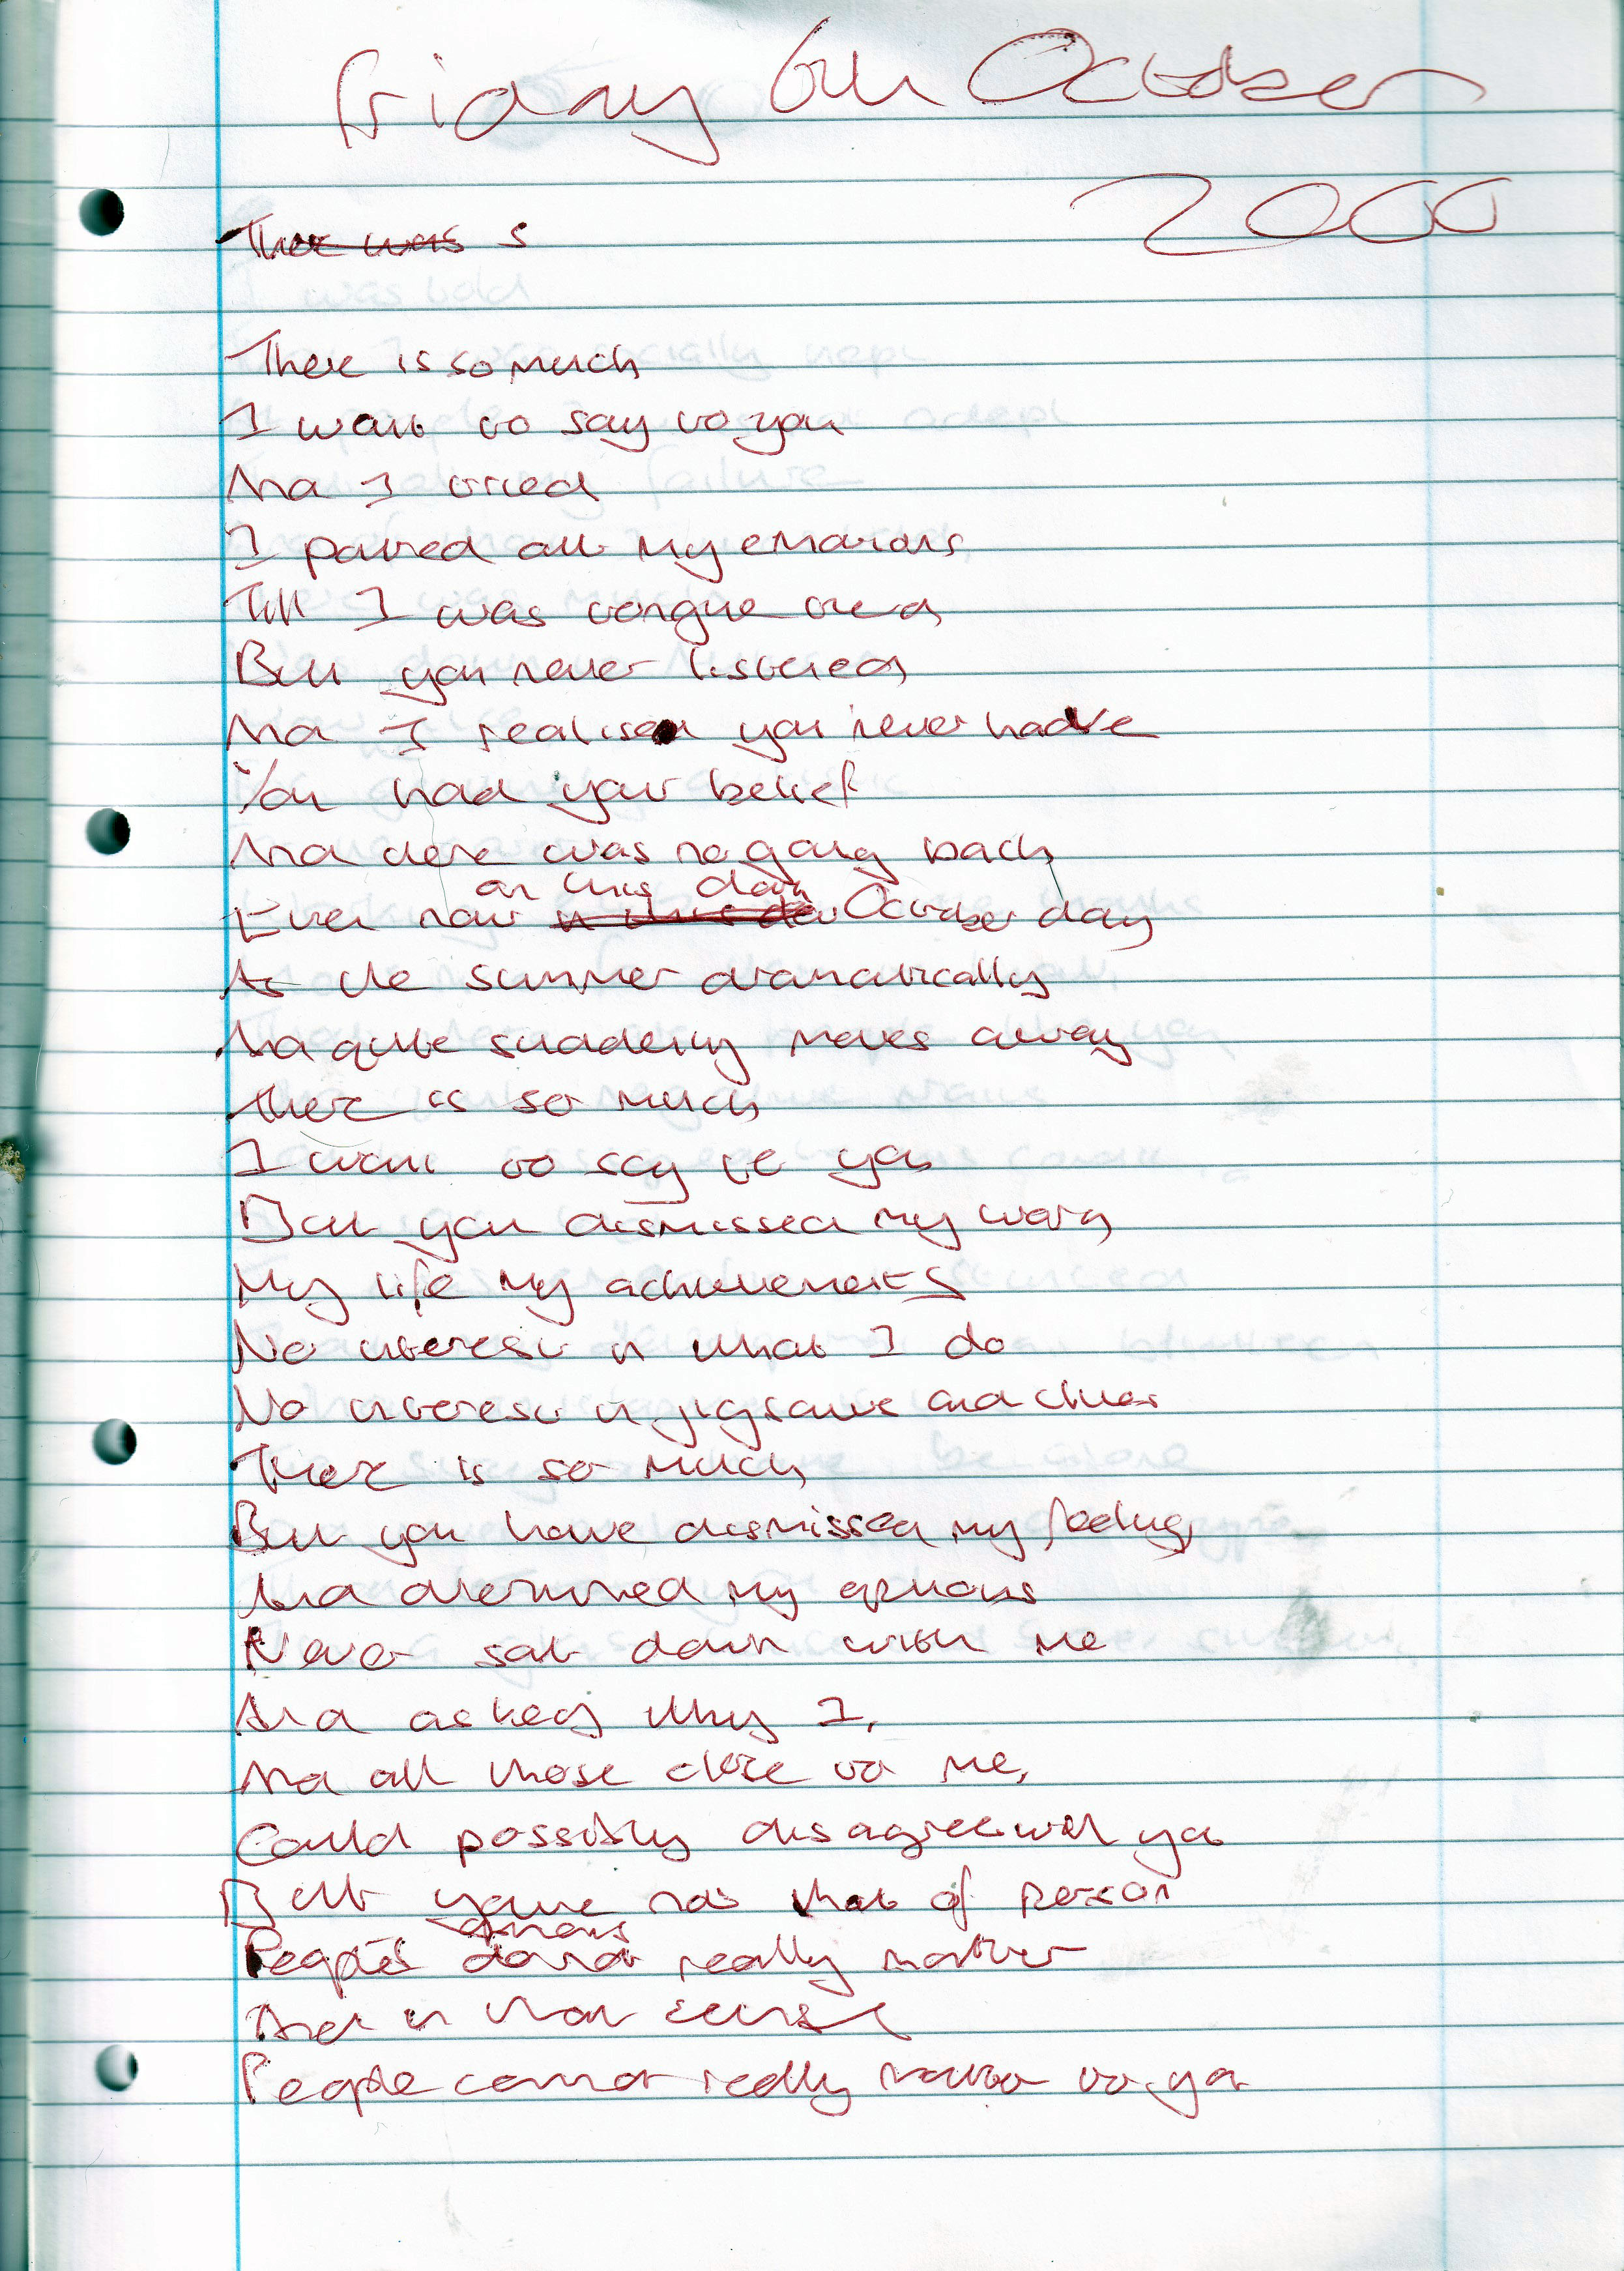 Friday 6th October
2000
There was s
There is so much
I want to say to you
And I tried
I poured out my emotions
Till I was tongue tied
But you never listened
And I realised you never have
You had your belief
And there was no going back
on this dark
Even now October day
As the summer dramatically
And quite suddenly moves away
There is so much
I want to say to you
But you dismissed my work
My life my achievements
No interest in what I do
No interest in jigsaws and clues
There is so much
But you have dismissed my feelings
And determined my opinions
Never sat down with me
And asked why I,
And all those close to me,
Could possibly disagree with you
But you're not that of person
opinions
People's do not really matter
And in that sense
People cannot really matter to you